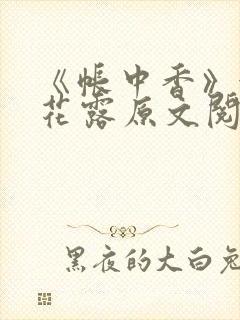 《帐中香》
花露原文阅
黑夜的大白兔